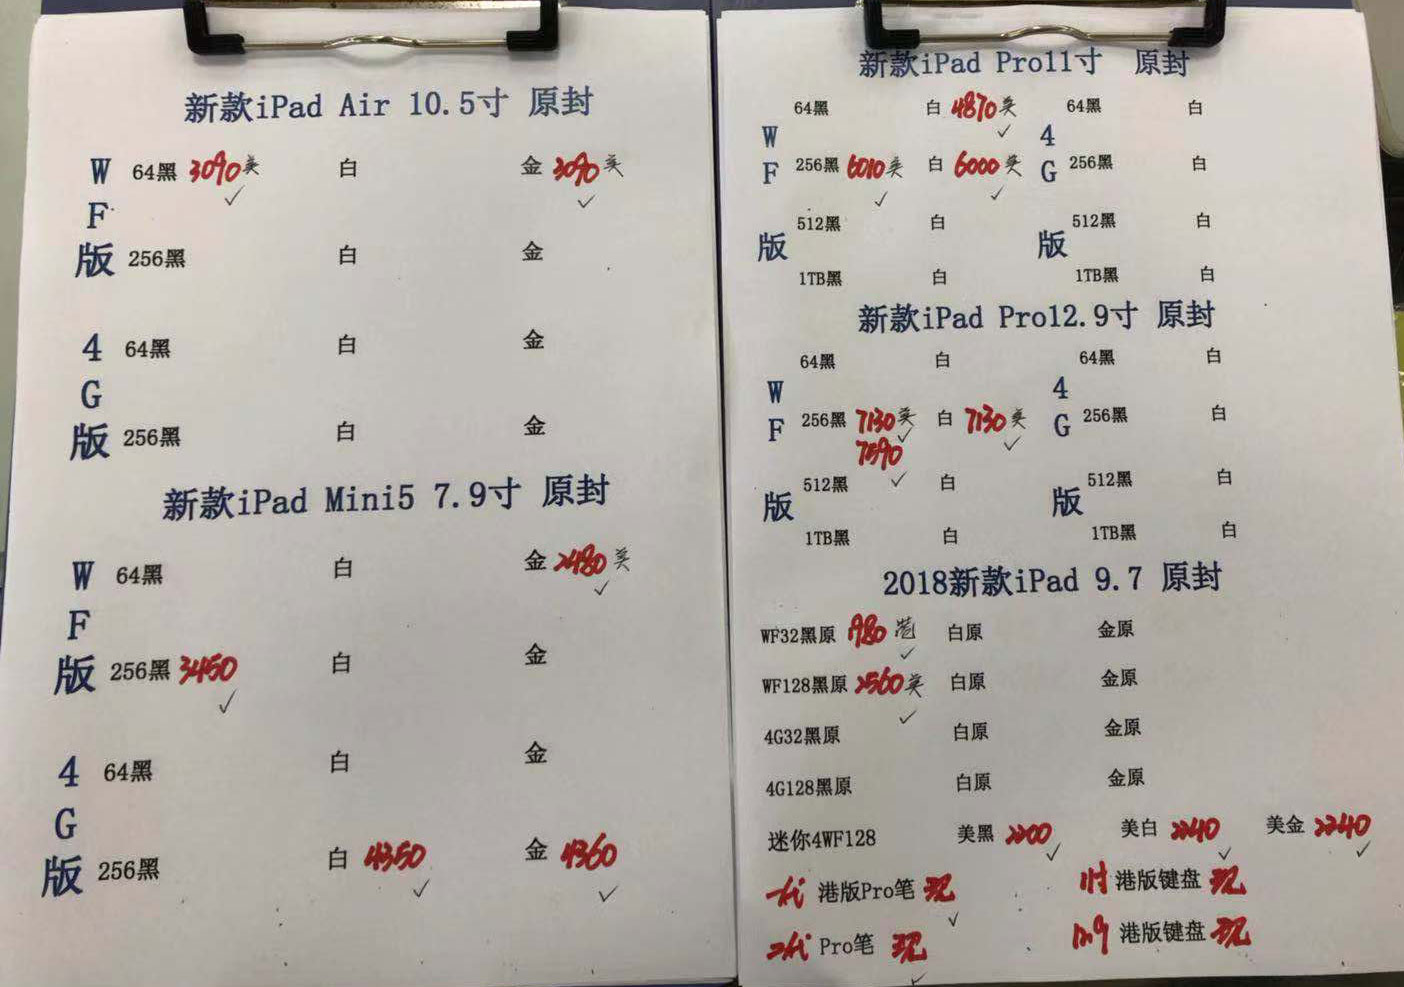 新款iPad Air 10.5寸 原封
WF版
64黑 3090美 白 金 3090美
256黑 白 金
4G版
64黑 白 金
256黑 白 金
新款iPad Mini5 7.9寸 原封
WF版
64黑 白 金 2480美
256黑 3450 白 金
4G版
64黑 白 金
256黑 白 4350 金 4360
新款iPad Pro11寸 原封
WF版 4G版
64黑 白 4870美 64黑 白
256黑 6010美 白 6000美 256黑 白
512黑 白 512黑 白
1TB黑 白 1TB黑 白
新款iPad Pro12.9寸 原封
WF版 4G版
64黑 白 64黑 白
256黑 7130美 白 7130美 256黑 白
7590
512黑 白 512黑 白
1TB黑 白 1TB黑 白
2018新款iPad 9.7 原封
WF32黑原 1980 白原 金原
WF128黑原 2560美 白原 金原
4G32黑原 白原 金原
4G128黑原 白原 金原
迷你4WF128 美黑 2200 美白 2240 美金 2240
一代 港版Pro笔 现 11寸 港版键盘 现
二代 Pro笔 现 12.9 港版键盘 现